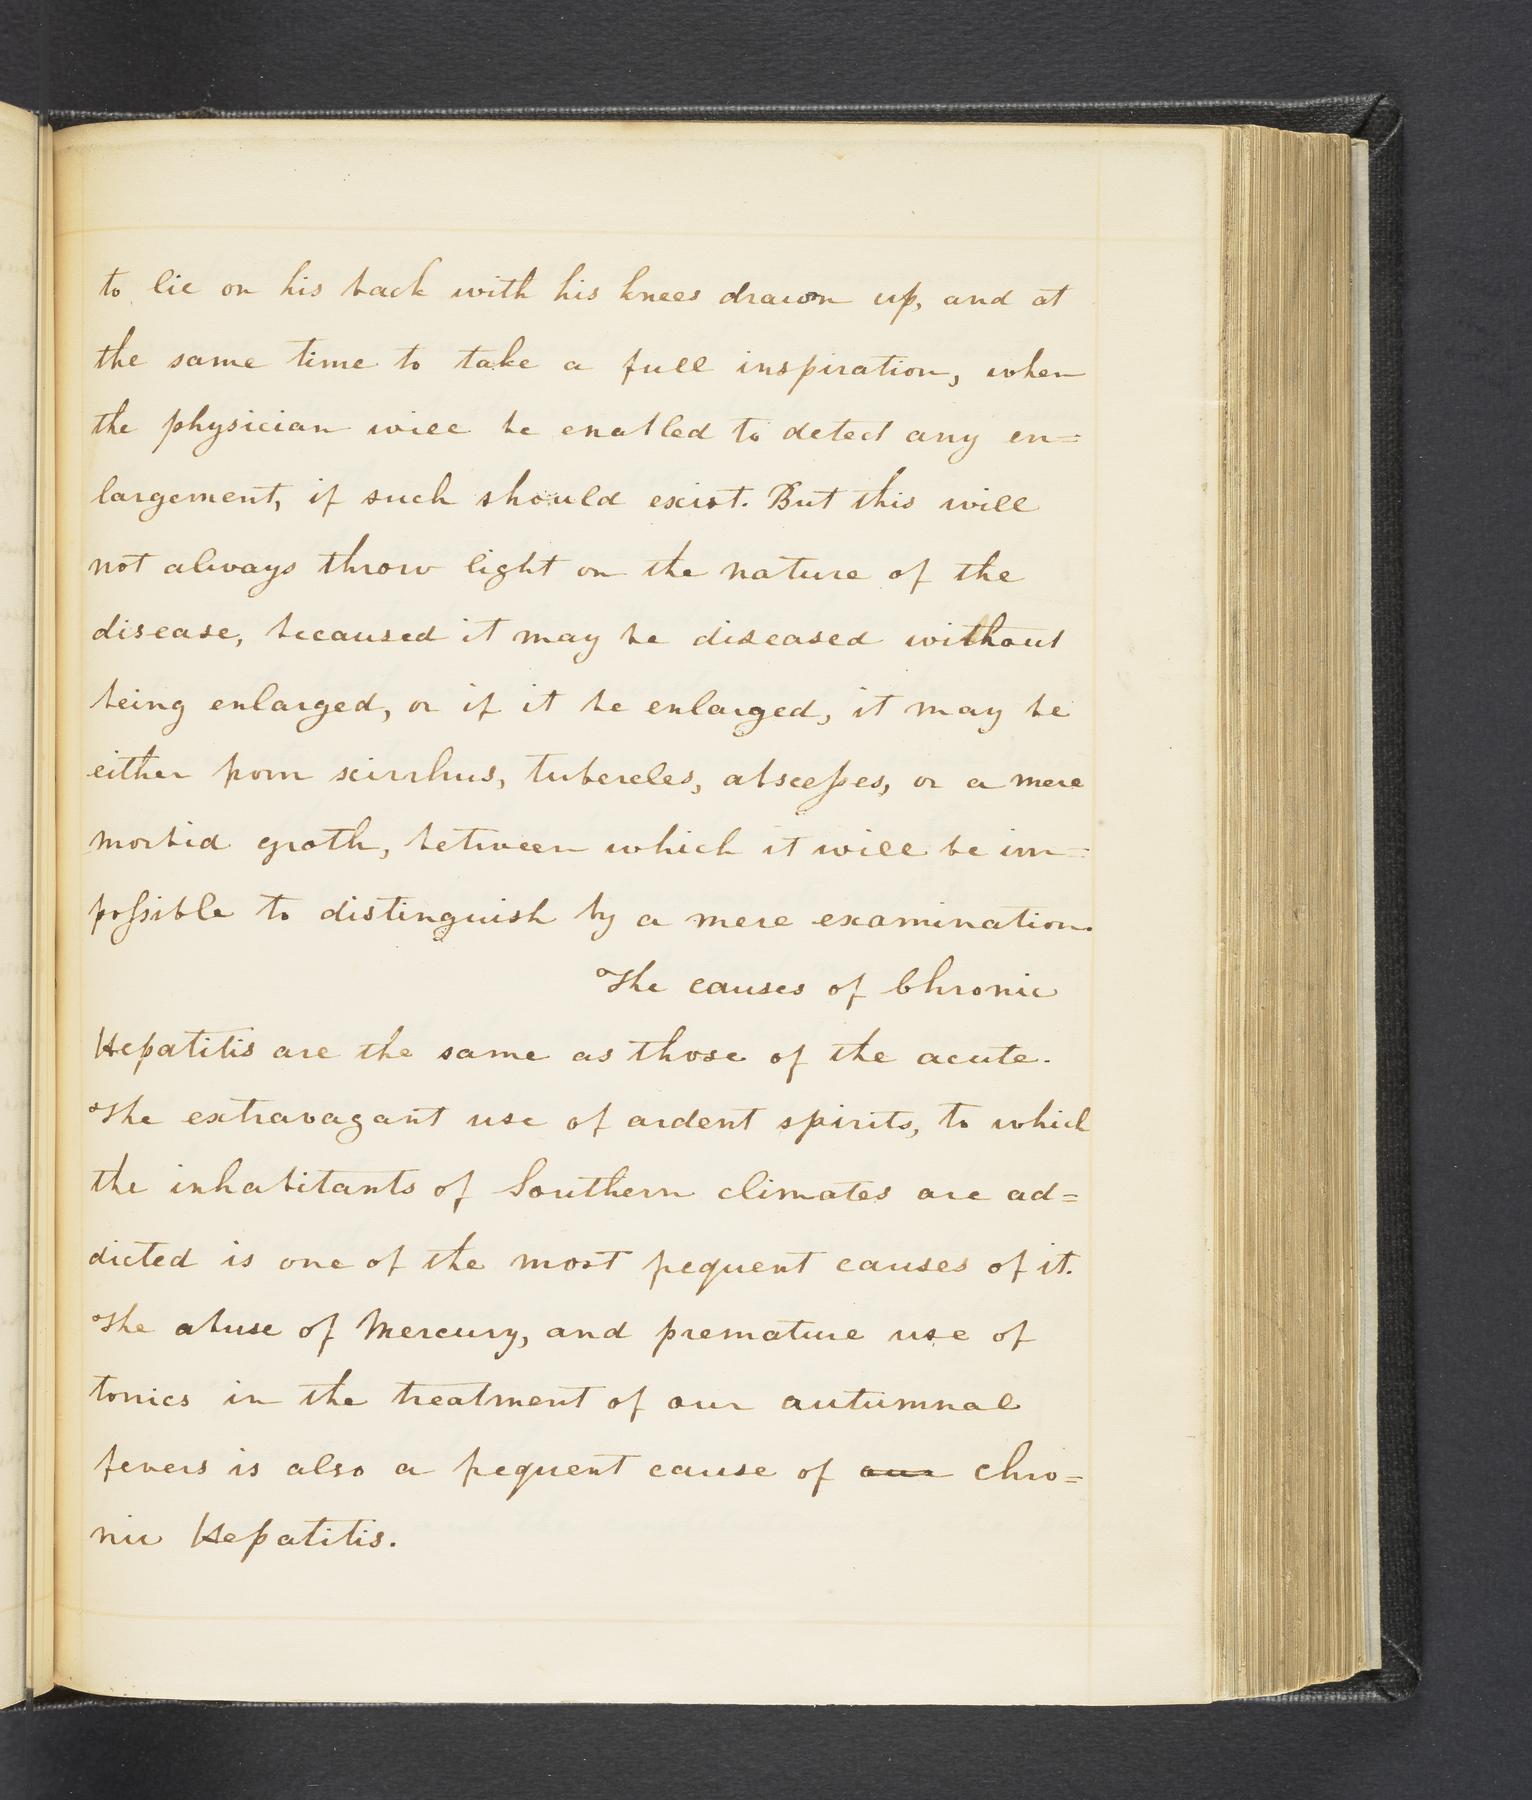 to lie on his back with his knees drawn up, and at
the same time to take a full inspiration, when
the physician will be enabled to detect any en=
largement, if such should exist. But this will
not always throw light on the nature of the
disease, becaused it may be diseased without
being enlarged, or if it be enlarged, it may be
either from scirrhus, tubercles, abscesses, or a mere
morbid groth, between which it will be im=
possible to distinguish by a mere examination.
The causes of Chronic
Hepatitis are the same as those of the acute.
The extravagant use of ardent spirits, to which
the inhabitants of Southern climates are ad=
dicted is one of the most frequent causes of it.
The abuse of Mercury, and premature use of
tonics in the treatment of our autumnal
fevers is also a frequent cause of our chro=
nic Hepatitis.